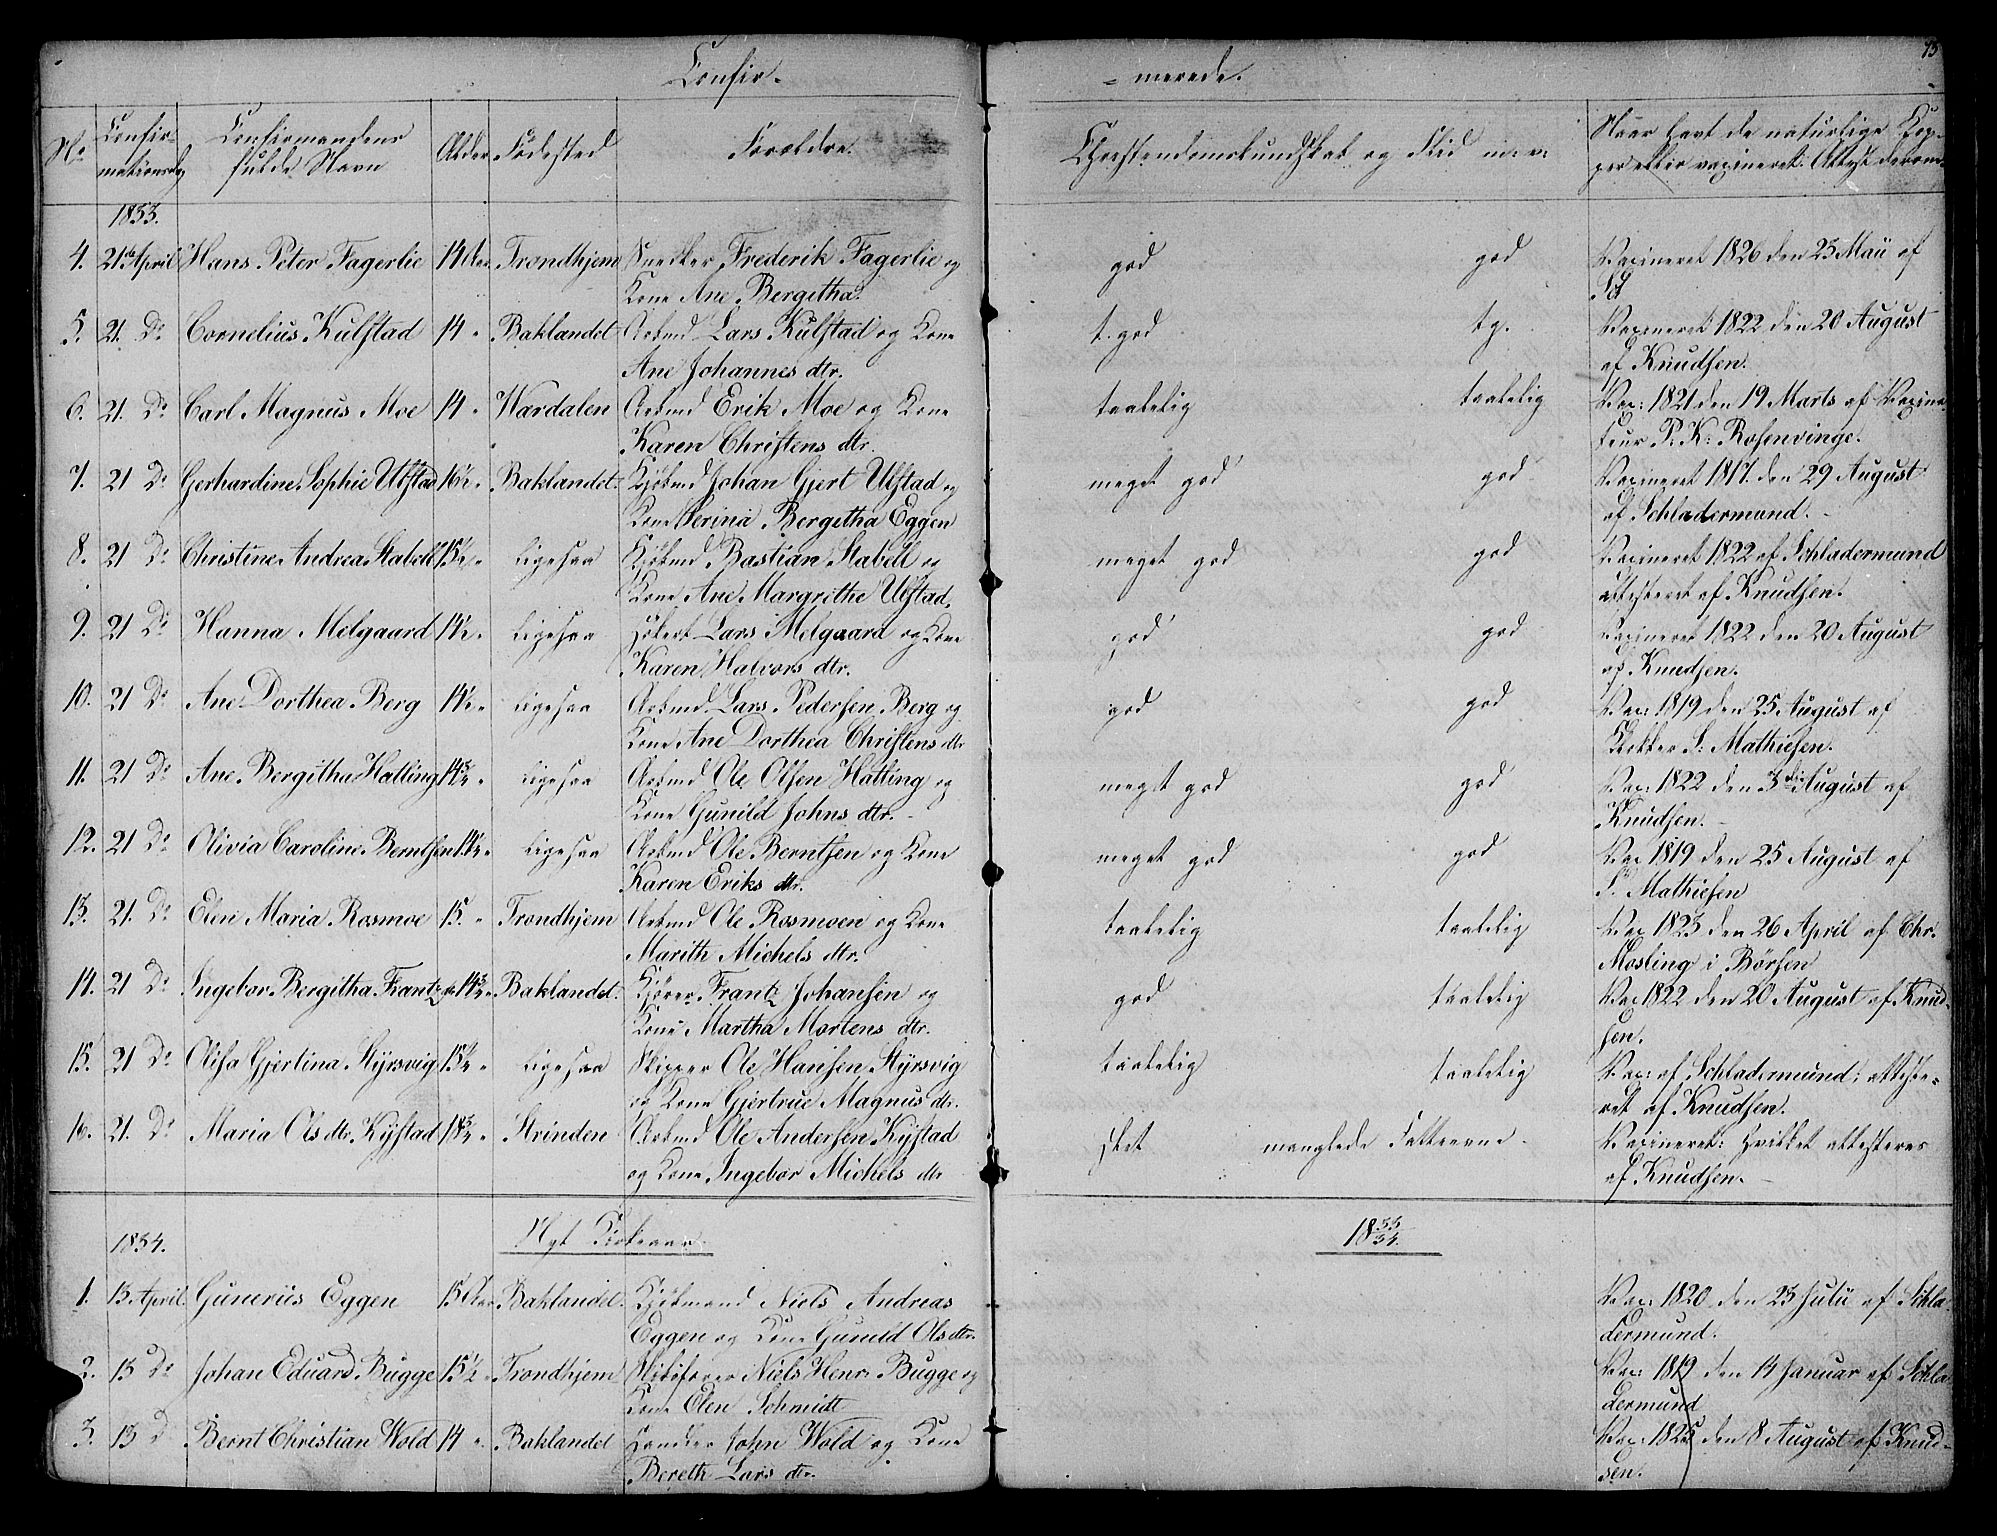 Confir-
-merede.
93
No
Confir-
mationsdag
Confirmandens
fulde Navn
Alder
Fødested
Forældre.
Christendomskundskab og Flid m: v:
Naar havt de naturlige Kop-
per eller vaxineret. Attest derom
1833.
4. 21de April Hans Peter Fagerlie 14 Aar Trondhjem Snedker Frederik Fagerlie og god god Vaxineret 1826 den 23 Mai af
Kone Ane Bergitha.
5. 21. Do Cornelius Kulstad 14 " Baklandet Arbmd Lars Kulstad og Kone t. god tg. Vaxineret 1822 den 20 August
Ane Johannes dtr. af Knudsen.
6. 21. Do Carl Magnus Moe 14 " Wardalen Arbmd Erik Moe og Kone taalelig taalelig Vax: 1821 den 19 Marts af Vaxina-
Karen Christens dtr. teur P. K: Rosenvinge.
7. 21 Do Gerhardine Sophie Ulstad 16½ " Baklandet. Kjøbmd Johan Gjert Ulstad og meget god god Vaxineret 1817. den 29 August
Kone Serina Bergitha Eggen af Schladermund.
8. 21 Do Christine Andrea Stabell 15½ " ligesaa Kjøbmd Bastian Stabell og meget god god Vaxineret 1822 af Schladermund
Kone Ane Margrethe Ulstad. attesteret af Knudsen.
9. 21 Do Hanna Melgaard 14½ " ligesaa Lars Melgaard og Kone god god Vaxineret 1822 den 20 August
Karen Halvors dtr. af Knudsen.
10. 21 Do Ane Dorthea Berg 14½ " ligesaa Arbmd Lars Pedersen Berg og god god Vax: 1819 den 25 August af
Kone Ane Dorthea Christens dtr Klokker S: Mathiesen.
11. 21 Do Ane Bergitha Hatling 14¾ " ligesaa Arbmd Ole Olsen Hatling og meget god god Vax: 1822 den 3die August af
Kone Gunild Johns dtr. Knudsen.
12. 21 Do Olivia Caroline Berntsen 14½ " ligesaa Arbmd Ole Berntsen og Kone meget god god Vax 1819 den 25 August af
Karen Eriks dtr. S. Mathiesen
13. 21. Do Elen Maria Rosmoe 15. " Trondhjem Arbmd Ole Rosmoen og Kone taalelig taalelig Vax 1823 den 26 April af Chr.
Marith Michels dtr. Mosling i Børsen
14. 21 Do Ingebor Bergitha Frantz 14¾ " Baklandet. Kjører Frantz Johansen og god taalelig Vax 1822 den 20 August af Knud-
Kone Martha Mortens dtr. sen.
15. 21 Do Olisa Gjertina Styrsvig 15¼ " ligesaa Skipper Ole Hansen Styrsvig taalelig taalelig Vax: af Schladermund; atteste-
og Kone Gjertrue Magnus dtr. ret af Knudsen.
16. 21. Do Maria Ols dtr. Kystad 18¾ " Strinden Arbmd Ole Andersen Kystad slet manglede Fatteevne. Vaxineret: hvilket attesteres
og Kone Ingebor Michels dtr af Knudsen.
1834. Nyt Kirkeaar 18 33/34.
1. 13 April. Gunerius Eggen 15 Aar Baklandet. Kjøbmand Niels Andreas Vax: 1820 den 23 Julii af Schla-
Eggen og Kone Gunild Ols dtr. dermund.
2. 13 Do Johan Eduard Bugge 15½ " Trondhjem Skibsfører Niels Henr. Bugge og Vax: 1819 den 14 Januar af Schla
Kone Elen Schmidt dermund
3. 13 D Bernt Christian Wold 14 " Baklandet Handler John Wold og Kone Vax: 1825 den 8 August af Knud-
Bereth Lars dtr. sen.